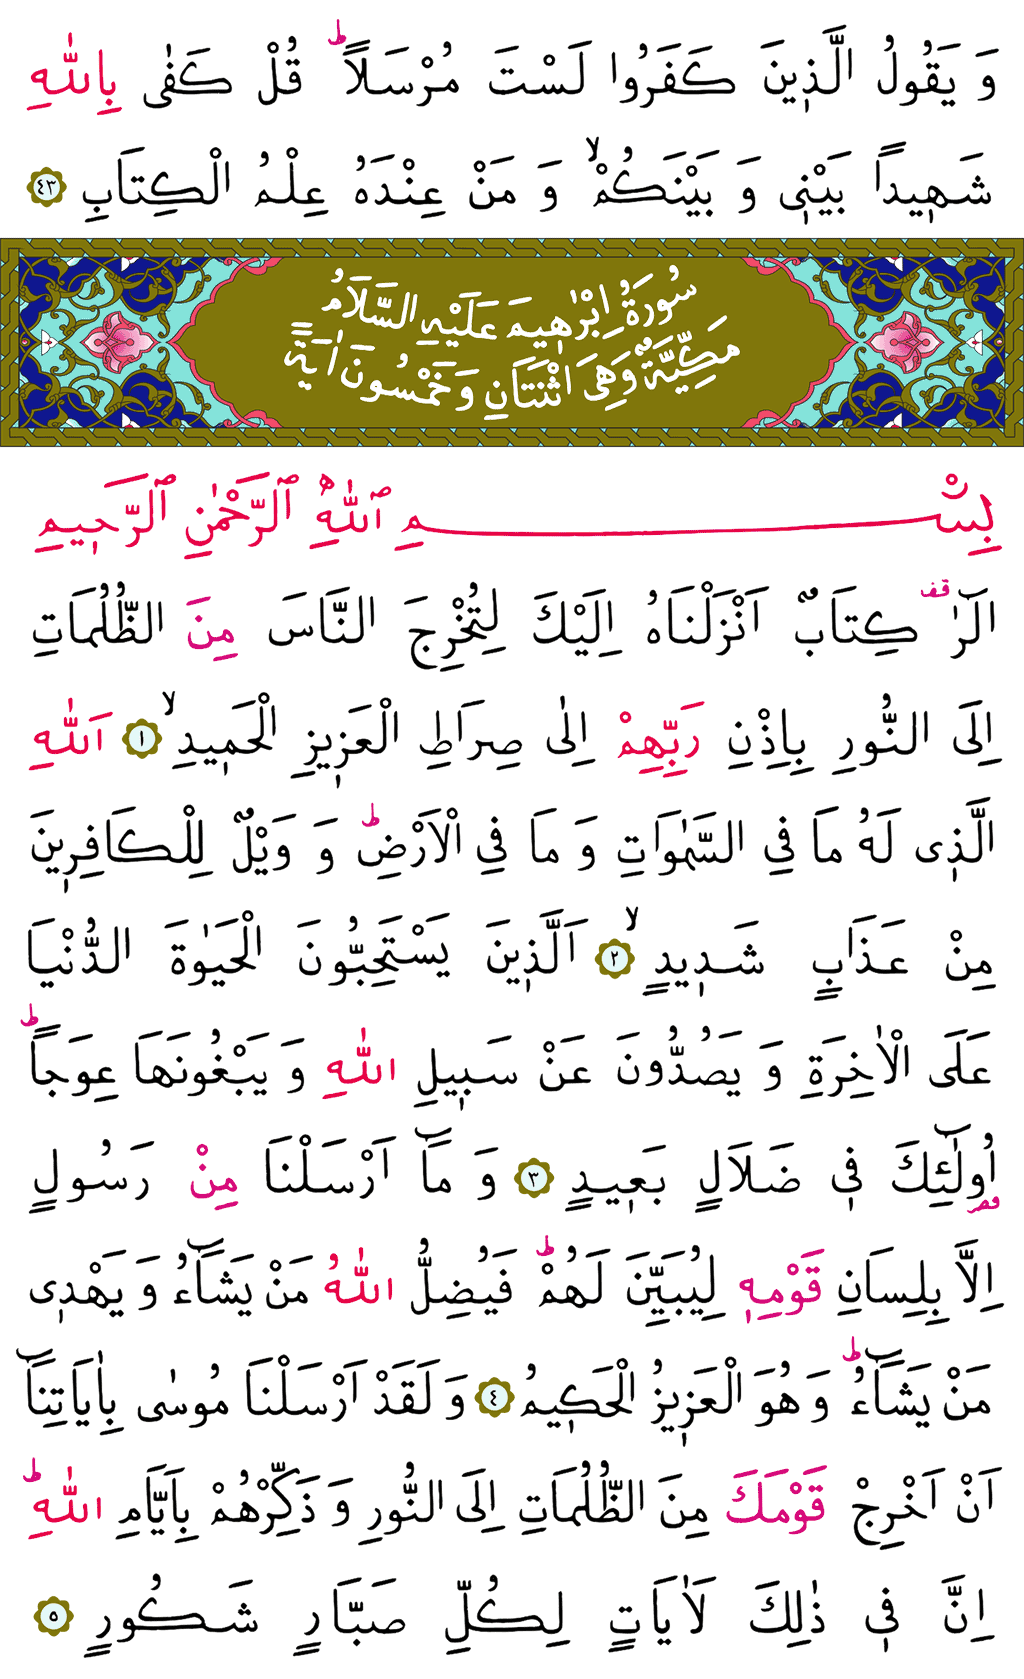 وَ يَقُولُ الَّذ۪ينَ كَفَرُوا لَسْتَ مُرْسَلاًۜ قُلْ كَفٰى بِاللّٰهِ
شَه۪يداً بَيْن۪ى وَ بَيْنَكُمْۙ وَ مَنْ عِنْدَهُ عِلْمُ الْكِتَابِ ﴿٤٣﴾
سُورَةُ اِبْرٰه۪يمَ عَلَيْهِ السَّلَامُ
مَكِّيَّةٌ وَهِىَ اثْنَتَانِ وَخَمْسُونَ اٰيَةً
بِسْمِ اللّٰهِ الرَّحْمٰنِ الرَّح۪يمِ
الٓرٰ۠ كِتَابٌ اَنْزَلْنَاهُ اِلَيْكَ لِتُخْرِجَ النَّاسَ مِنَ الظُّلُمَاتِ
اِلَى النُّورِ بِاِذْنِ رَبِّهِمْ اِلٰى صِرَاطِ الْعَز۪يزِ الْحَم۪يدِۙ ﴿١﴾ اَللّٰهِ
الَّذ۪ى لَهُ مَا فِى السَّمٰوَاتِ وَ مَا فِى الْاَرْضِۜ وَ وَيْلٌ لِلْكَافِر۪ينَ
مِنْ عَذَابٍ شَد۪يدٍۙ ﴿٢﴾ اَلَّذ۪ينَ يَسْتَحِبُّونَ الْحَيٰوةَ الدُّنْيَا
عَلَى الْاٰخِرَةِ وَ يَصُدُّونَ عَنْ سَب۪يلِ اللّٰهِ وَ يَبْغُونَهَا عِوَجاًۜ
اُولٰٓئِكَ ف۪ى ضَلَالٍ بَع۪يدٍ ﴿٣﴾ وَ مَٓا اَرْسَلْنَا مِنْ رَسُولٍ
اِلَّا بِلِسَانِ قَوْمِه۪ لِيُبَيِّنَ لَهُمْۜ فَيُضِلُّ اللّٰهُ مَنْ يَشَٓاءُ وَ يَهْد۪ى
مَنْ يَشَٓاءُۜ وَ هُوَ الْعَز۪يزُ الْحَك۪يمُ ﴿٤﴾ وَ لَقَدْ اَرْسَلْنَا مُوسٰى بِاٰيَاتِنَٓا
اَنْ اَخْرِجْ قَوْمَكَ مِنَ الظُّلُمَاتِ اِلَى النُّورِ وَ ذَكِّرْهُمْ بِاَيَّامِ اللّٰهِۜ
اِنَّ ف۪ى ذٰلِكَ لَاٰيَاتٍ لِكُلِّ صَبَّارٍ شَكُورٍ ﴿٥﴾